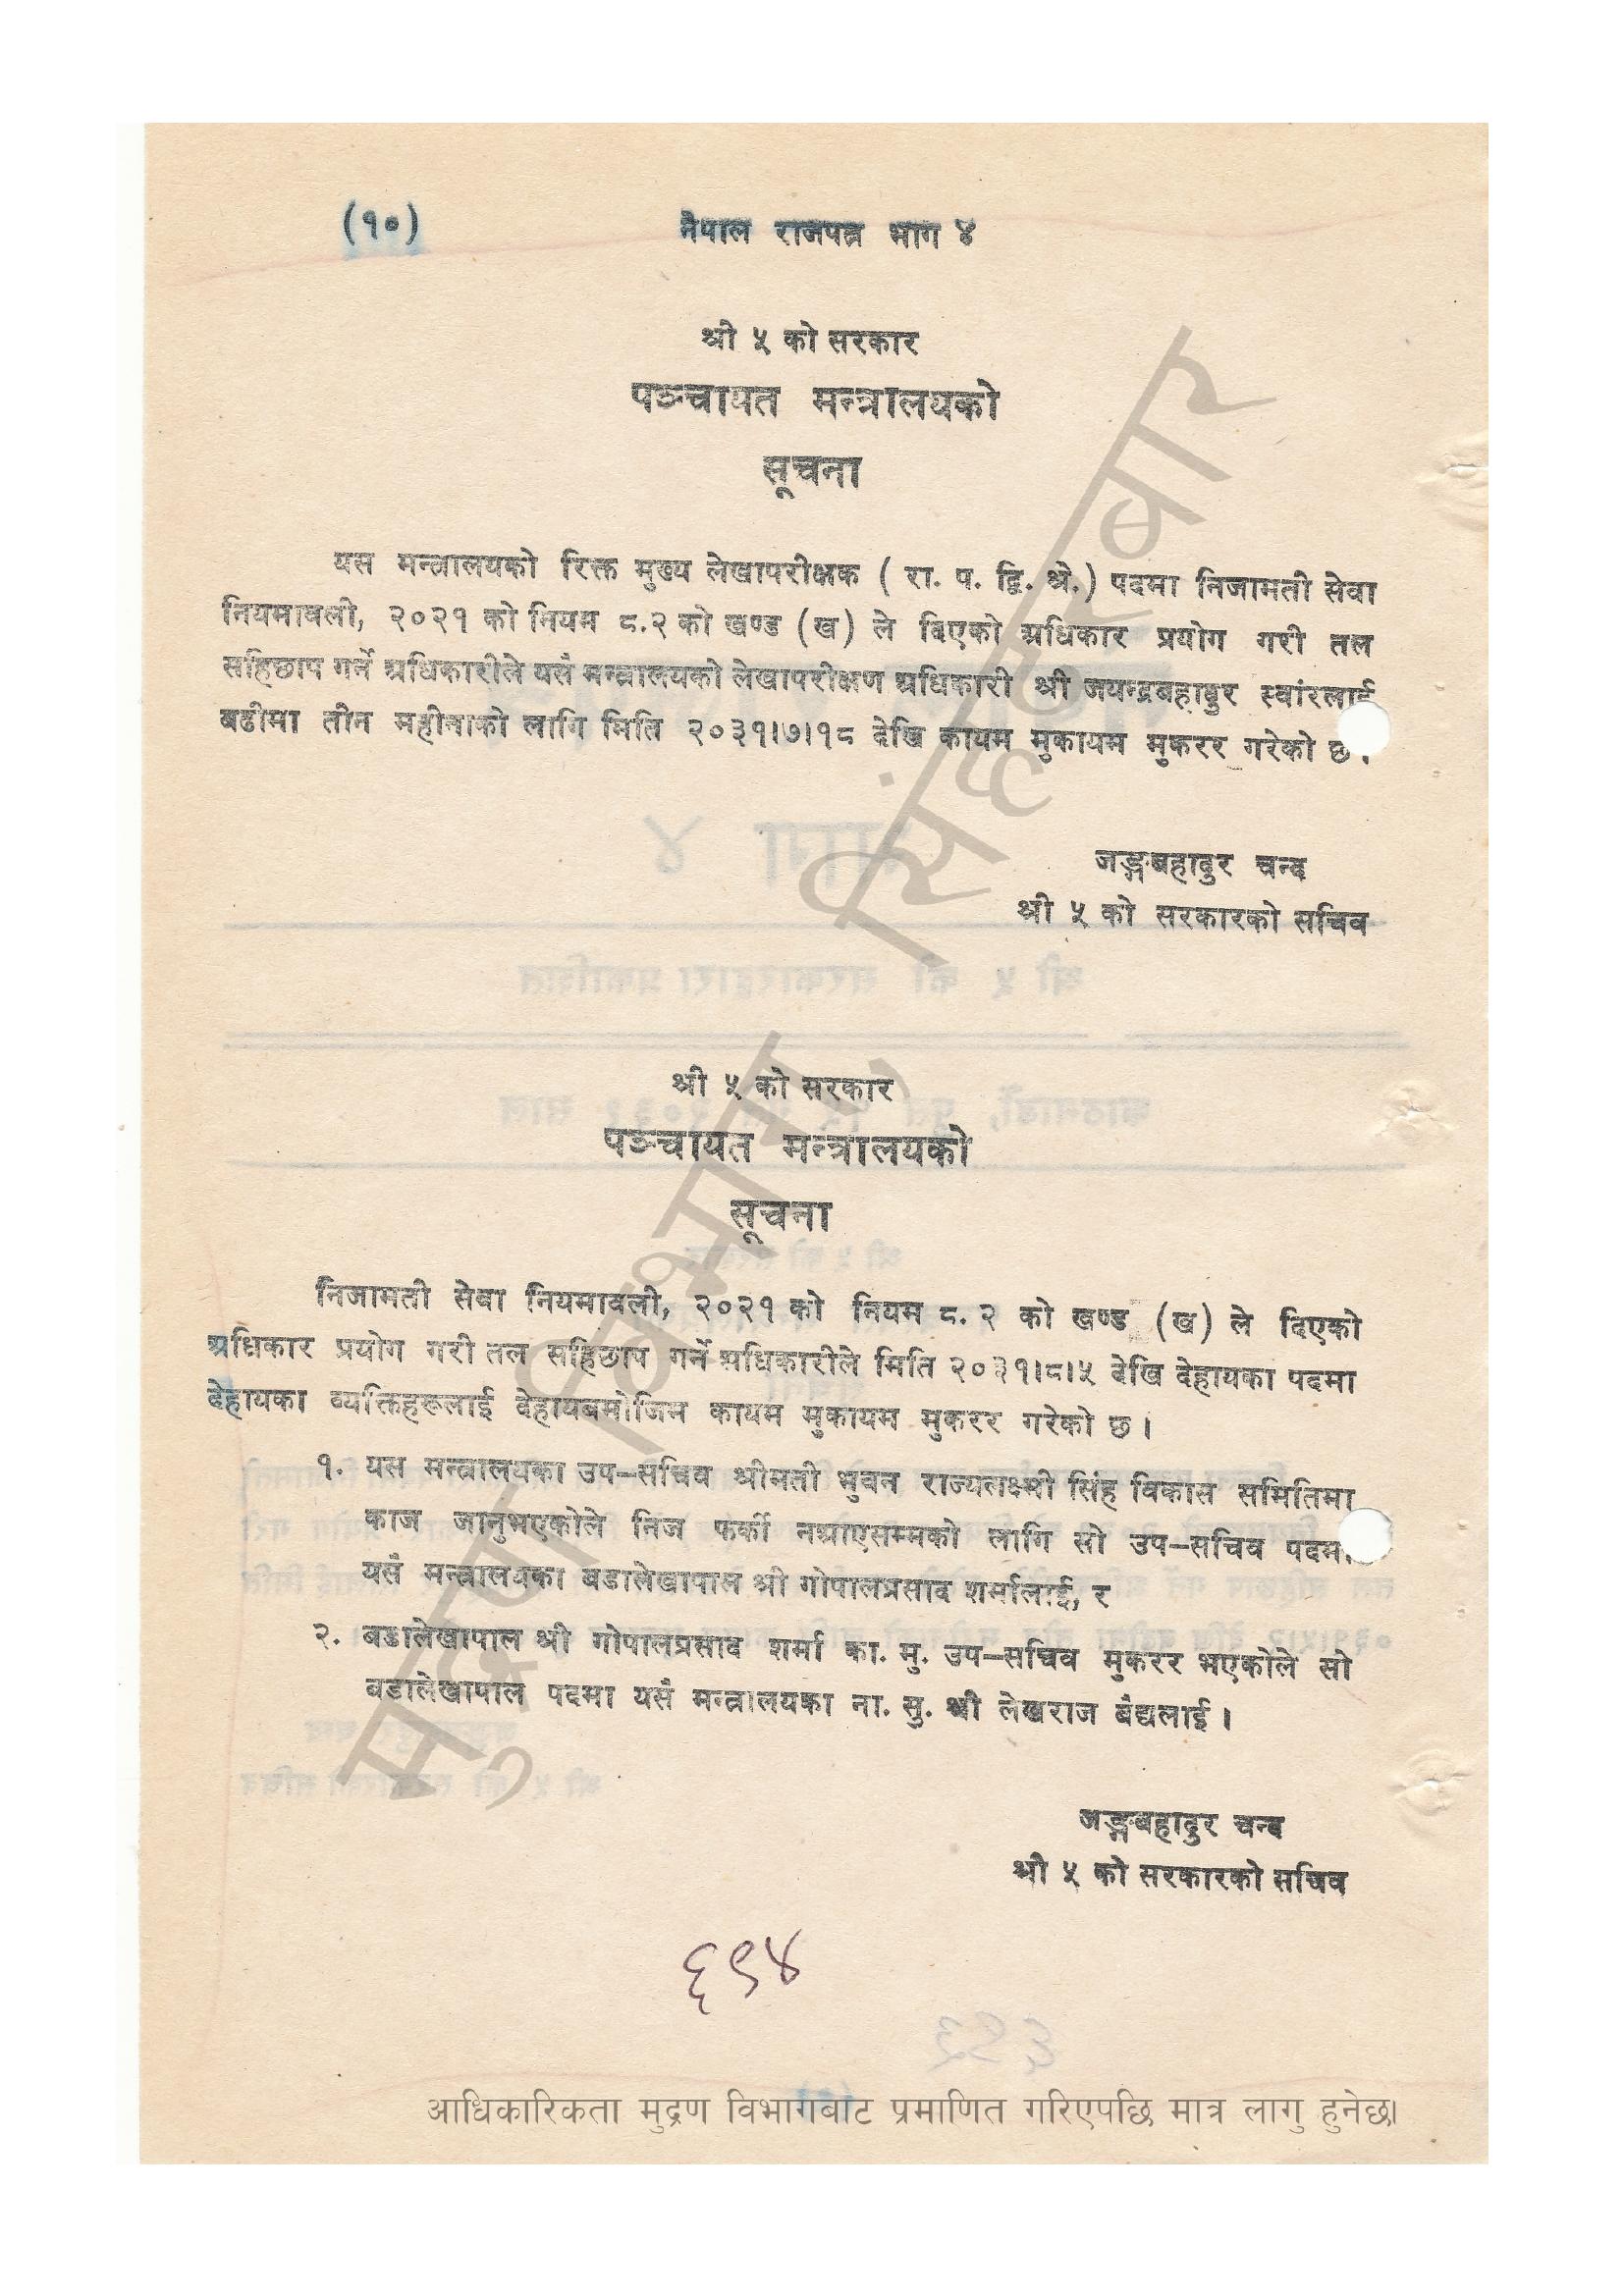 (१०)
नेपाल राजपत्र भाग ४
श्री ५ को सरकार
पञ्चायत मन्त्रालयको
सूचना
यस मन्त्रालयको रिक्त मुख्य लेखापरीक्षक ( रा. प. द्वि. श्रे.) पदमा निजामती सेवा
नियमावली, २०२१ को नियम ८.२ को खण्ड (ख) ले दिएको अधिकार प्रयोग गरी तल
सहिछाप गर्ने अधिकारीले यसै मन्त्रालयको लेखापरीक्षण अधिकारी श्री जयन्द्रबहादुर स्वांरलाई
बढीमा तीन महीनाको लागि मिति २०३१।७।१८ देखि कायम मुकायम मुकरर गरेको छ।
जङ्गबहादुर चन्द
श्री ५ को सरकारको सचिव
श्री ५ को सरकार
पञ्चायत मन्त्रालयको
सूचना
निजामती सेवा नियमावली, २०२१ को नियम ८.२ को खण्ड (ख) ले दिएको
अधिकार प्रयोग गरी तल सहिछाप गर्ने अधिकारीले मिति २०३१।८।५ देखि देहायका पदमा
देहायका व्यक्तिहरूलाई देहायबमोजिम कायम मुकायम मुकरर गरेको छ।
१. यस मन्त्रालयका उप–सचिव श्रीमती भुवन राज्यलक्ष्मी सिंह विकास समितिमा
काज जानुभएकोले निज फर्की नआएसम्मको लागि सो उप–सचिव पदमा
यसै मन्त्रालयका बडालेखापाल श्री गोपालप्रसाद शर्मालाई, र
२. बडालेखापाल श्री गोपालप्रसाद शर्मा का. मु. उप–सचिव मुकरर भएकोले सो
बडालेखापाल पदमा यसै मन्त्रालयका ना. सु. श्री लेखराज बैद्यलाई।
जङ्गबहादुर चन्द
श्री ५ को सरकारको सचिव
६९४
आधिकारिकता मुद्रण विभागबाट प्रमाणित गरिएपछि मात्र लागु हुनेछ।
मुद्रण विभाग, सिंहदरवार